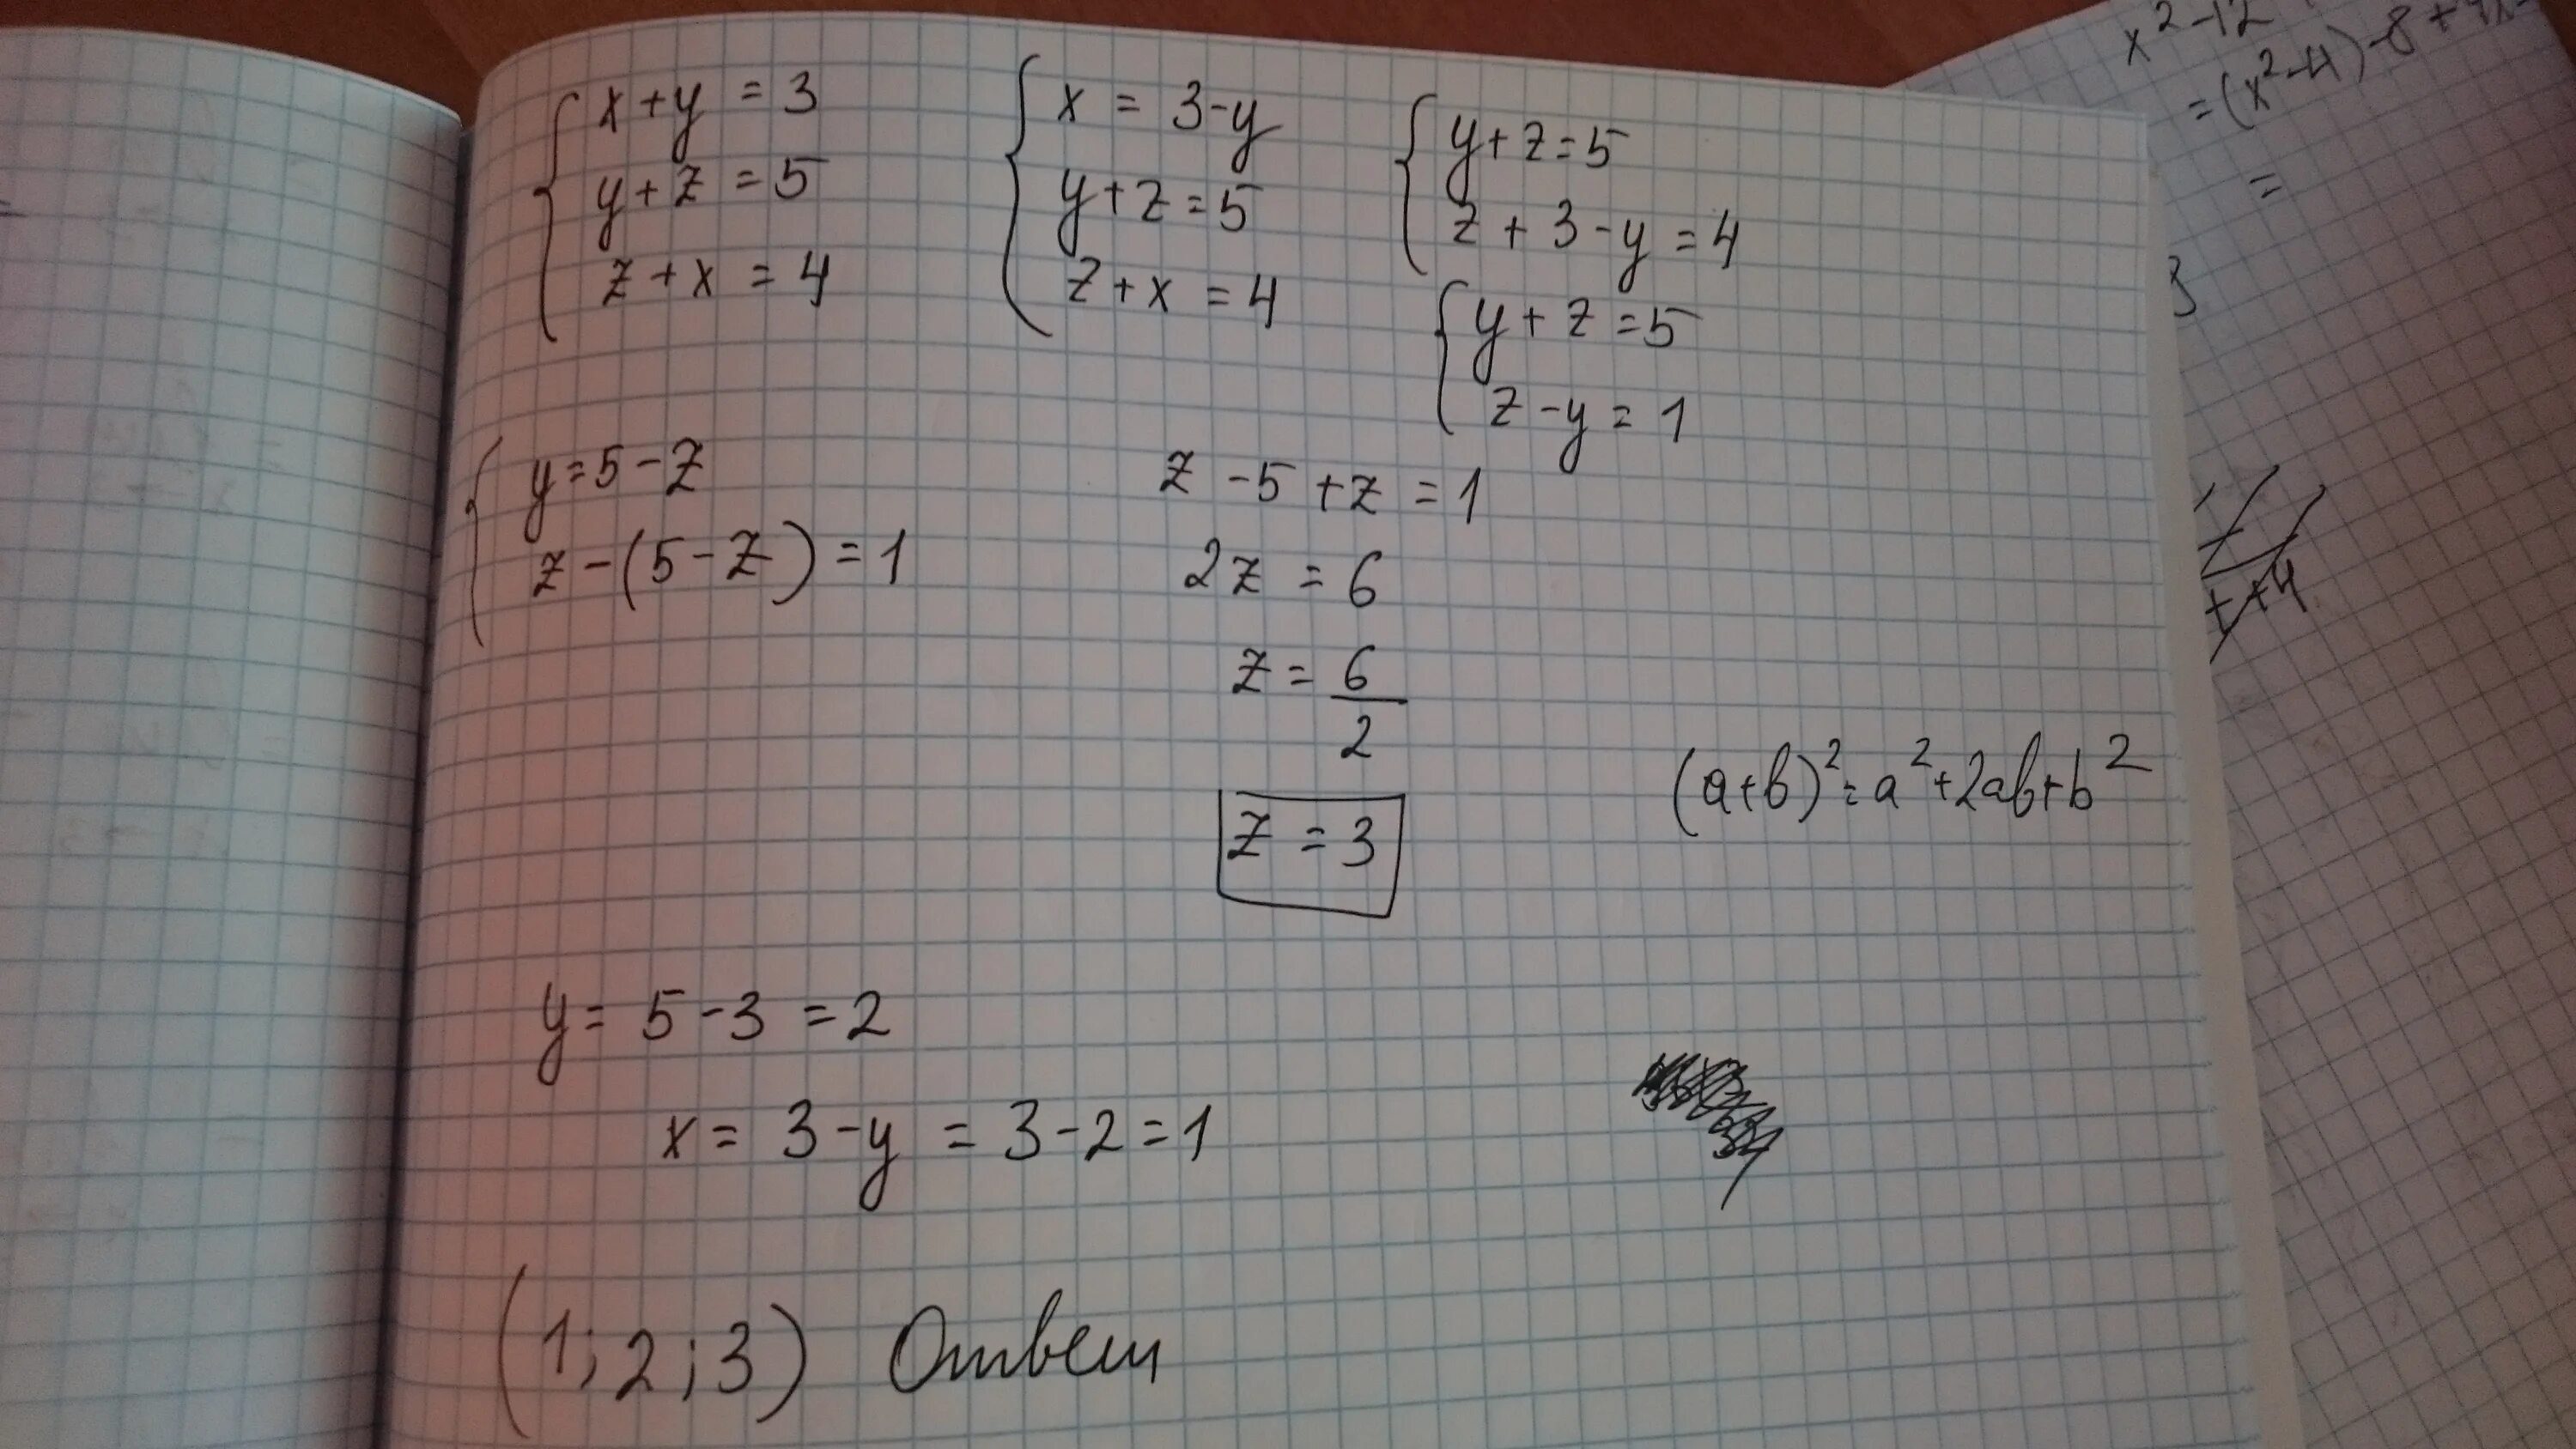 x + y = 3
y + z = 5
z + x = 4
x = 3 - y
y + z = 5
z + x = 4
y + z = 5
z + 3 - y = 4
y + z = 5
z - y = 1
y = 5 - z
z - (5 - z) = 1
z - 5 + z = 1
2z = 6
z = 6/2
z = 3
(a+b)² = a² + 2ab + b²
y = 5 - 3 = 2
x = 3 - y = 3 - 2 = 1
(1; 2; 3) Ответ
x² - 12
= (x² - 4) - 8 +
=